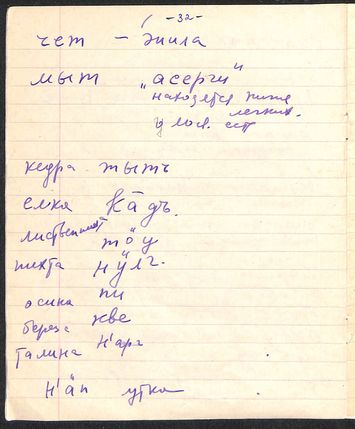 -32-
чет - жила
мыт "асерги"
находятся ниже
легких.
у лося. ест
кедра тыть
елка ка̄дъ.
лиственница тӧу
пихта нӱлг.
осина пи
береза кве
талина н'арг
н'ӓп утка